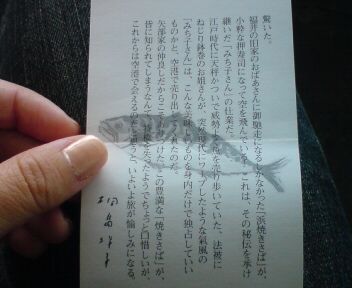 驚いた。
福井の旧家のおばあさんに御馳走になるしかなかった「浜焼きさば」が、
小粋な押寿司になって空を飛んでいる。これは、その秘伝を受け
継いだ「みち子さん」の仕業だ。
江戸時代に天秤かついで威勢よく魚を売り歩いていた、法被に
ねじり鉢巻のお姐さんが、突然現代にワープしたような気風の
「みち子さん」は、こんな美味しいものを身内だけで独占していい
ものかと、空港で売り出したのだ。
矢部家の仲良しだからこそ
この豊満な「焼きさば」が、
皆に知られてしまうなんて、
ようでちょっと口惜しいが、
これからは空港で会えるのだと思うと、いよいよ旅が愉しみになる。